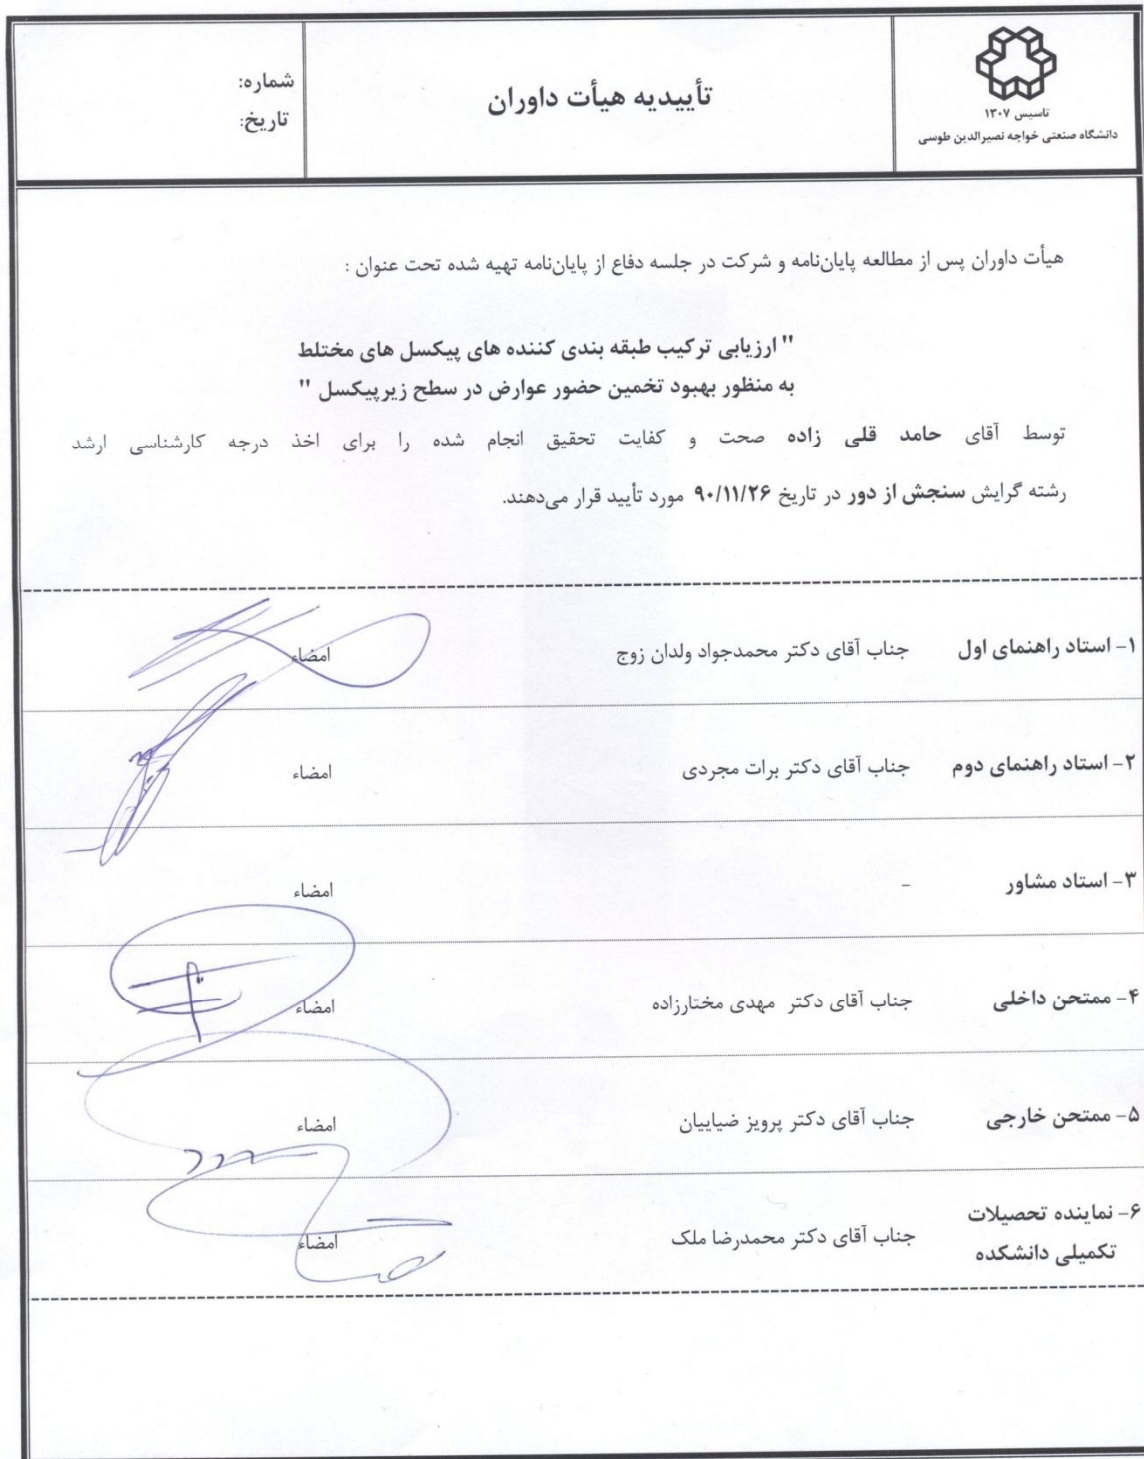 تاسیس ۱۳۰۷
دانشگاه صنعتی خواجه نصیرالدین طوسی
تأییدیه هیأت داوران
شماره:
تاریخ:
هیأت داوران پس از مطالعه پایان‌نامه و شرکت در جلسه دفاع از پایان‌نامه تهیه شده تحت عنوان :
" ارزیابی ترکیب طبقه بندی کننده های پیکسل های مختلط
به منظور بهبود تخمین حضور عوارض در سطح زیرپیکسل "
توسط آقای حامد قلی زاده صحت و کفایت تحقیق انجام شده را برای اخذ درجه کارشناسی ارشد
رشته گرایش سنجش از دور در تاریخ ۹۰/۱۱/۲۶ مورد تأیید قرار می‌دهند.
۱- استاد راهنمای اول جناب آقای دکتر محمدجواد ولدان زوج امضاء
۲- استاد راهنمای دوم جناب آقای دکتر برات مجردی امضاء
۳- استاد مشاور - امضاء
۴- ممتحن داخلی جناب آقای دکتر مهدی مختارزاده امضاء
۵- ممتحن خارجی جناب آقای دکتر پرویز ضیاییان امضاء
۶- نماینده تحصیلات
تکمیلی دانشکده جناب آقای دکتر محمدرضا ملک امضاء